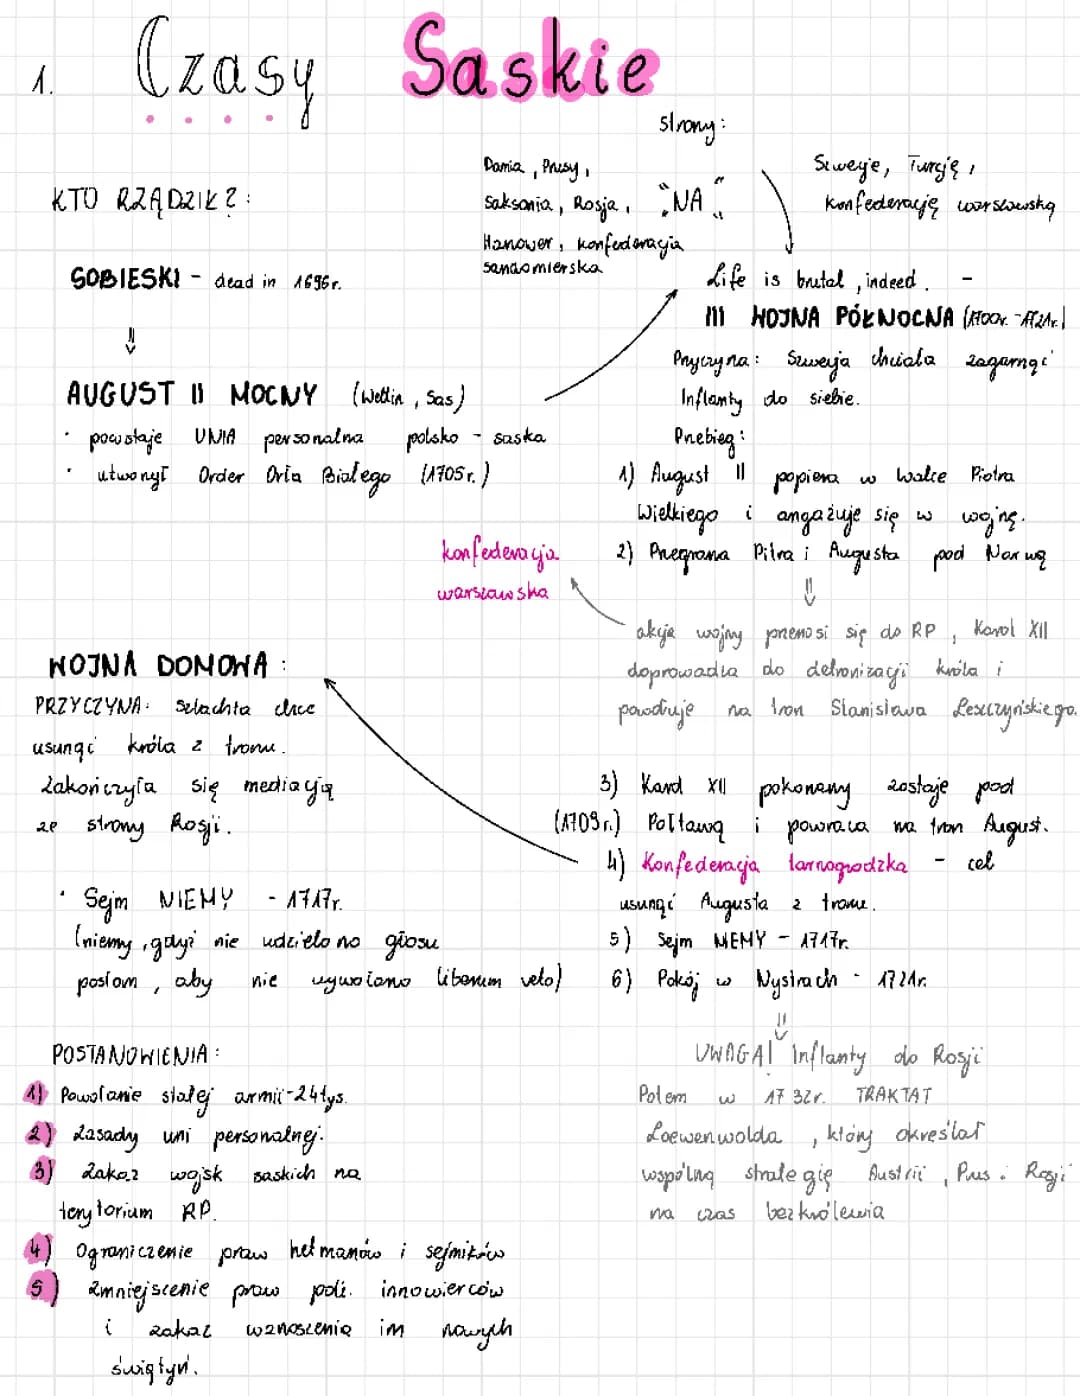 1. Czasy Saskie
strony:
Dania, Prusy,
Saksonia, Rosja,
Hanower, konfederacja
sandomierska
"NA"
Szwecję, Turcję,
konfederację warszawską
KTO RZĄDZIŁ?:
SOBIESKI - dead in 1696r.
⇓
AUGUST II MOCNY (Wettin, Sas)
· powstaje UNIA personalna polsko - saska
· utworzył Order Orła Białego (1705r.)
Life is brutal, indeed. -
III WOJNA PÓŁNOCNA (1700r. - 1721r.)
Przyczyna: Szwecja chciała zagarnąć
Inflanty do siebie.
Przebieg:
1) August II popiera w walce Piotra
Wielkiego i angażuje się w wojnę.
2) Przegrana Pitra i Augusta pod Narwą
⇓
akcja wojny przenosi się do RP, Karol XII
doprowadza do detronizacji króla i
powołuje na tron Stanisława Leszczyńskiego.
konfederacja
warszawska
3) Karol XII pokonany zostaje pod
(1709r.) Połtawą i powraca na tron August.
4) Konfederacja tarnogrodzka - cel
usunąć Augusta z tronu.
5) Sejm NIEMY - 1717r.
6) Pokój w Nystrach - 1721r.
⇓
UWAGA! Inflanty do Rosji
Potem w 1732r. TRAKTAT
Loewenwolda, który określał
wspólną strategię Austrii, Prus i Rosji
na czas bezkrólewia
WOJNA DOMOWA:
PRZYCZYNA: Szlachta chce
usunąć króla z tronu.
Zakończyła się mediacją
ze strony Rosji.
· Sejm NIEMY - 1717r.
(niemy, gdyż nie udzielono głosu
posłom, aby nie wywołano liberum veto)
POSTANOWIENIA:
1) Powołanie stałej armii - 24tys.
2) Zasady uni personalnej.
3) Zakaz wojsk saskich na
terytorium RP.
4) Ograniczenie praw hetmanów i sejmików
5) Zmniejszenie praw poli. innowierców
i zakaz wznoszenia im nowych
świątyń.